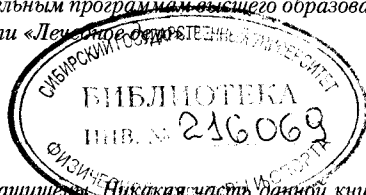 льным программам высшего образова
ли «Лечебное дело»
СИБИРСКИЙ ГОСУДАРСТВЕННЫЙ УНИВЕРСИТЕТ
БИБЛИОТЕКА
ИНВ. № 216069
ФИЗИЧЕСКОЙ КУЛЬТУРЫ И СПОРТА
ащищены. Никакая часть данной кни